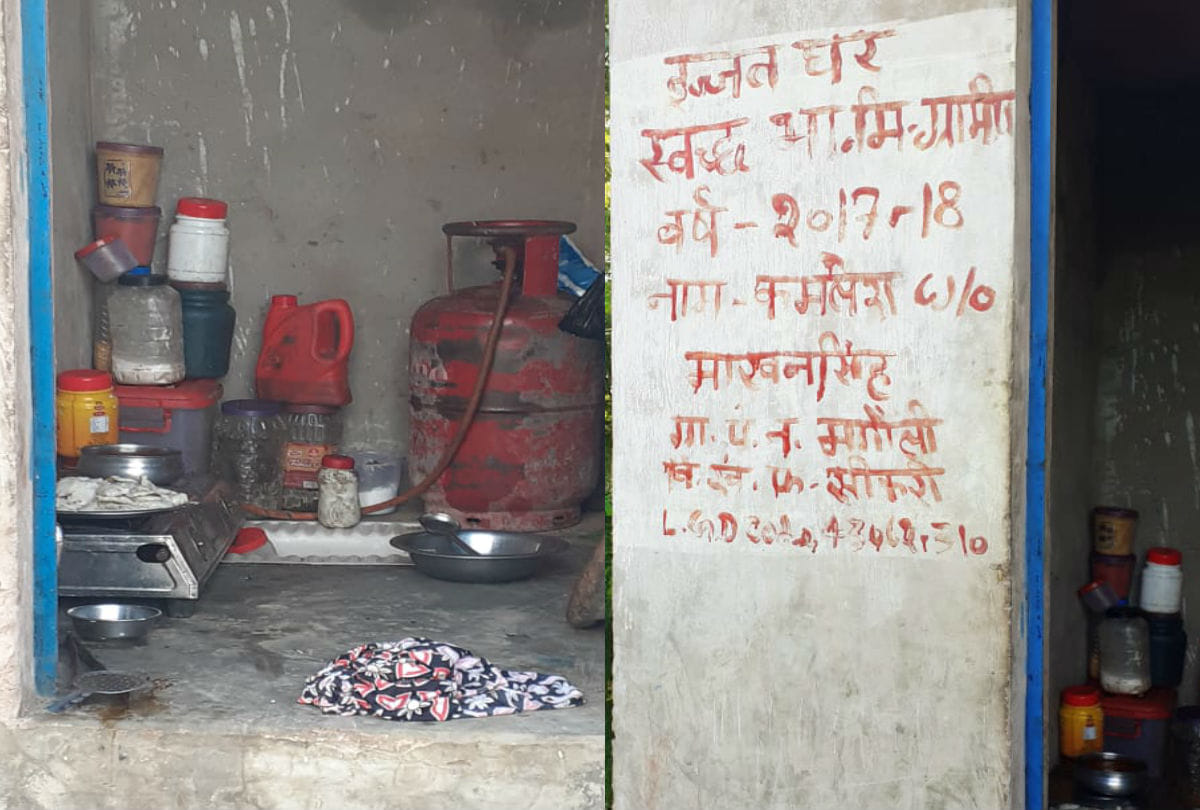 इज्जत घर
स्वच्छ भा.मि.ग्रामीण
वर्ष - २०17-18
नाम - कमलेश w/o
माखनसिंह
ग्रा. पं. न. मगौली
वि. खं. फ. सीकरी
L.G.D Code